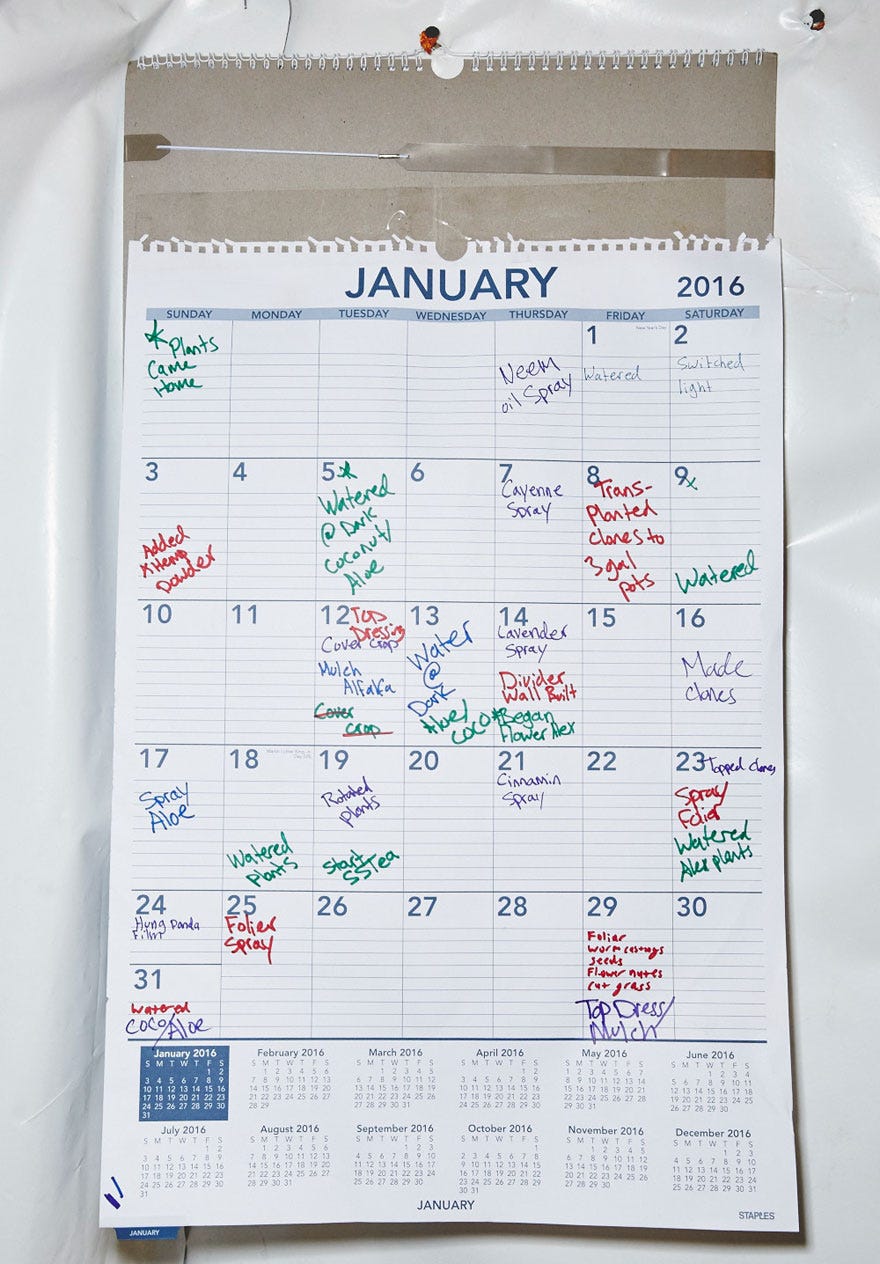 JANUARY 2016
SUNDAY MONDAY TUESDAY WEDNESDAY THURSDAY FRIDAY SATURDAY
Plants
Came
Home
Neem
oil Spray
1
New Year's Day
Watered
2
Switched
light
3
Added
Hemp
Powder
4
5
Watered
@ Dark
Coconut/
Aloe
6
7
Cayenne
Spray
8
Trans-
planted
clones to
3 gal
pots
9
Watered
10
11
12
Top
Dressing
Cover Crop
Mulch
Alfalfa
Cover
Crop
13
Water
@
Dark
Aloe/
COCO
14
Lavender
Spray
Divider
Wall Built
Began
Flower Alex
15
16
Made
clones
17
Spray
Aloe
18
Watered
plants
19
Rotated
Plants
Start
SSTea
20
21
Cinnamin
Spray
22
23
Topped clones
Spray
Folier
Watered
Alex plants
24
Hung Panda
Film
25
Folier
Spray
26
27
28
29
Foliar
worm castings
seeds
Flower nutes
cut grass
Top Dress/
Mulch
30
31
Watered
COCO/Aloe
January 2016
S M T W T F S
1 2
3 4 5 6 7 8 9
10 11 12 13 14 15 16
17 18 19 20 21 22 23
24 25 26 27 28 29 30
31
February 2016
S M T W T F S
1 2 3 4 5 6
7 8 9 10 11 12 13
14 15 16 17 18 19 20
21 22 23 24 25 26 27
28 29
March 2016
S M T W T F S
1 2 3 4 5
6 7 8 9 10 11 12
13 14 15 16 17 18 19
20 21 22 23 24 25 26
27 28 29 30 31
April 2016
S M T W T F S
1 2
3 4 5 6 7 8 9
10 11 12 13 14 15 16
17 18 19 20 21 22 23
24 25 26 27 28 29 30
May 2016
S M T W T F S
1 2 3 4 5 6 7
8 9 10 11 12 13 14
15 16 17 18 19 20 21
22 23 24 25 26 27 28
29 30 31
June 2016
S M T W T F S
1 2 3 4
5 6 7 8 9 10 11
12 13 14 15 16 17 18
19 20 21 22 23 24 25
26 27 28 29 30
July 2016
S M T W T F S
1 2
3 4 5 6 7 8 9
10 11 12 13 14 15 16
17 18 19 20 21 22 23
24 25 26 27 28 29 30
31
August 2016
S M T W T F S
1 2 3 4 5 6
7 8 9 10 11 12 13
14 15 16 17 18 19 20
21 22 23 24 25 26 27
28 29 30 31
September 2016
S M T W T F S
1 2 3
4 5 6 7 8 9 10
11 12 13 14 15 16 17
18 19 20 21 22 23 24
25 26 27 28 29 30
October 2016
S M T W T F S
1
2 3 4 5 6 7 8
9 10 11 12 13 14 15
16 17 18 19 20 21 22
23 24 25 26 27 28 29
30 31
November 2016
S M T W T F S
1 2 3 4 5
6 7 8 9 10 11 12
13 14 15 16 17 18 19
20 21 22 23 24 25 26
27 28 29 30
December 2016
S M T W T F S
1 2 3
4 5 6 7 8 9 10
11 12 13 14 15 16 17
18 19 20 21 22 23 24
25 26 27 28 29 30 31
JANUARY
STAPLES
JANUARY